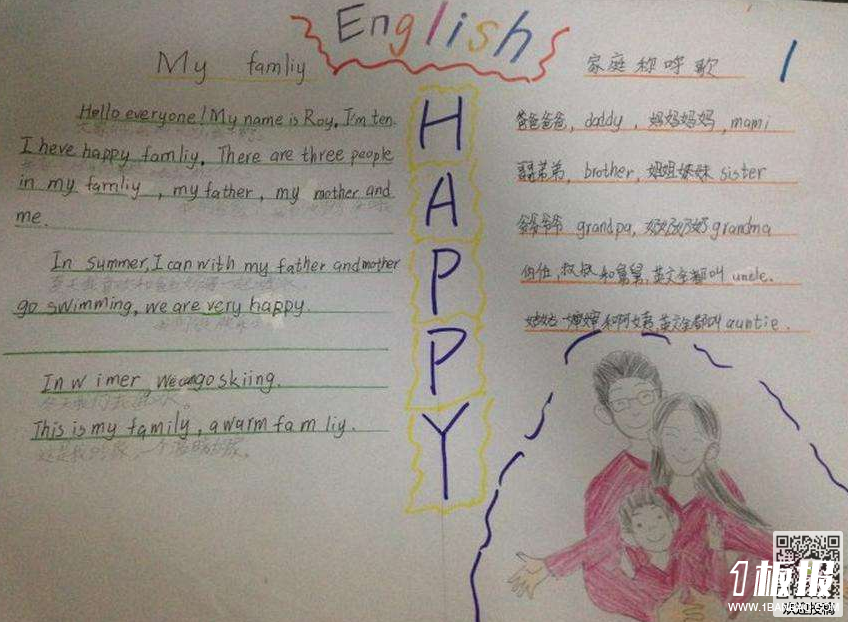 English
My famliy
Hello everyone! My name is Roy. I'm ten.
I heve happy famliy. There are three people
in my famliy, my father, my mother and
me.
In summer, I can with my father and mother
go swimming, we are very happy.
In wimer, we can go skiing.
这是我的家,一个温暖的家。
This is my family, a warm famliy.
HAPPY
家庭称呼歌
1
爸爸爸爸, daddy, 妈妈妈妈, mami
弟弟, brother, 姐姐妹妹 sister
爷爷爷爷 grandpa, 奶奶奶奶 grandma
伯伯, 叔叔和舅舅, 英文全都叫 uncle.
姑姑 婶婶和阿姨, 英文全都叫 auntie.
1板报
WWW.1BANBAO.COM
欢迎投稿